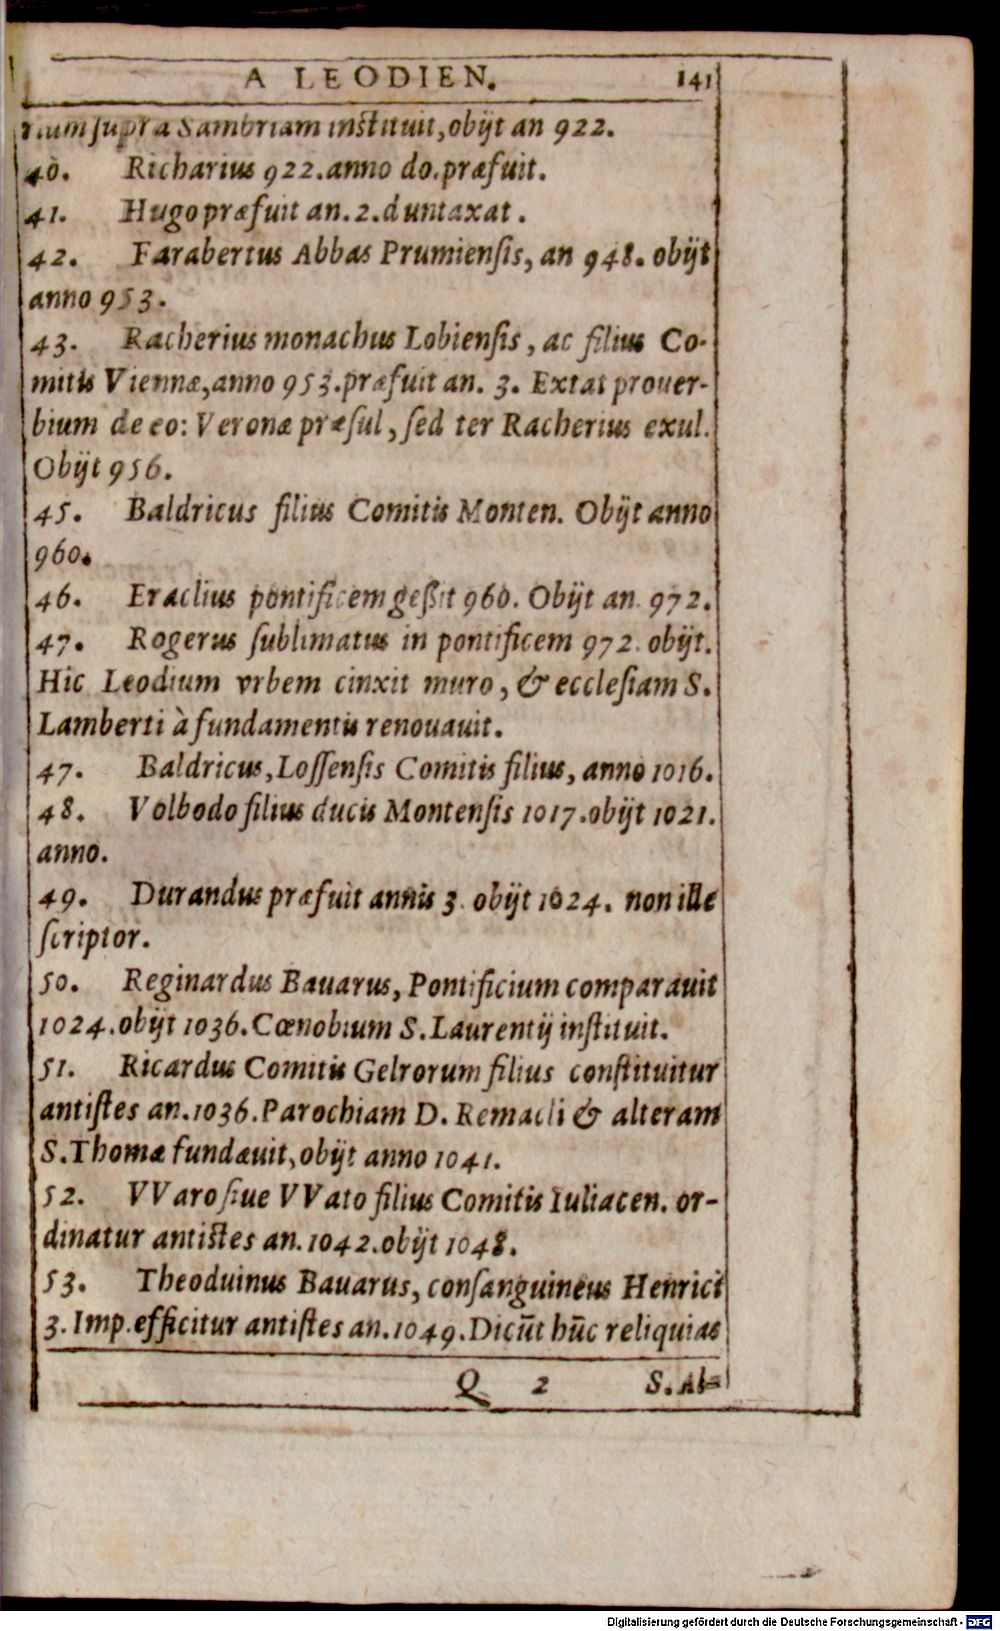 A LEODIEN. 141
rium supra Sambriam instituit, obijt an 922.
40. Richarius 922. anno do. præfuit.
41. Hugo præfuit an. 2. duntaxat.
42. Farabertus Abbas Prumiensis, an 948. obijt
anno 953.
43. Racherius monachus Lobiensis, ac filius Co-
mitis Viennæ, anno 953. præfuit an. 3. Extat prouer-
bium de eo: Veronæ præsul, sed ter Racherius exul.
Obijt 956.
45. Baldricus filius Comitis Monten. Obijt anno
960.
46. Eraclius pontificem geßit 960. Obijt an. 972.
47. Rogerus sublimatus in pontificem 972. obijt.
Hic Leodium vrbem cinxit muro, & ecclesiam S.
Lamberti à fundamentis renouauit.
47. Baldricus, Lossensis Comitis filius, anno 1016.
48. Volbodo filius ducis Montensis 1017. obijt 1021.
anno.
49. Durandus præfuit annis 3. obijt 1024. non ille
scriptor.
50. Reginardus Bauarus, Pontificium comparauit
1024. obijt 1036. Cœnobium S. Laurentij instituit.
51. Ricardus Comitis Gelrorum filius constituitur
antistes an. 1036. Parochiam D. Remacli & alteram
S. Thomæ fundæuit, obijt anno 1041.
52. VVaro siue VVato filius Comitis Iuliacen. or-
dinatur antistes an. 1042. obijt 1048.
53. Theoduinus Bauarus, consanguineus Henrici
3. Imp. efficitur antistes an. 1049. Dicūt hūc reliquias
Q 2 S. Al-
Digitalisierung gefördert durch die Deutsche Forschungsgemeinschaft - DFG